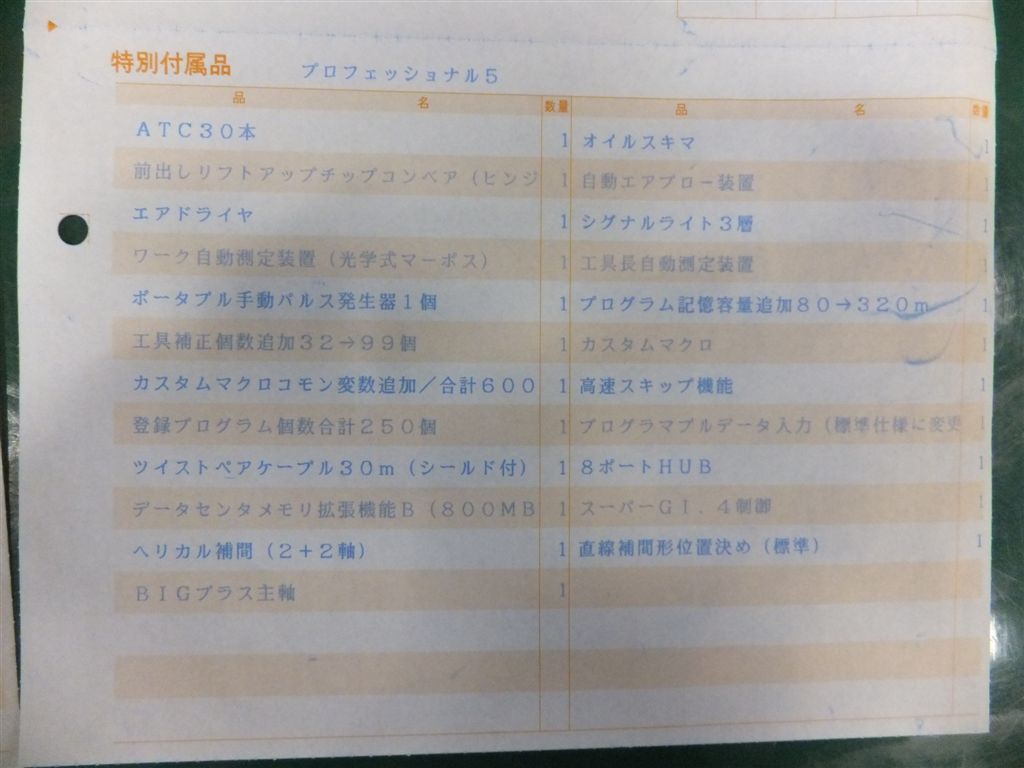 特別付属品 プロフェッショナル5
品 名 数量 品 名 数量
ATC30本 1 オイルスキマ 1
前出しリフトアップチップコンベア(ヒンジ 1 自動エアブロー装置 1
エアドライヤ 1 シグナルライト3層 1
ワーク自動測定装置(光学式マーポス) 1 工具長自動測定装置 1
ポータブル手動パルス発生器1個 1 プログラム記憶容量追加80→320m 1
工具補正個数追加32→99個 1 カスタムマクロ 1
カスタムマクロコモン変数追加/合計600 1 高速スキップ機能 1
登録プログラム個数合計250個 1 プログラマブルデータ入力(標準仕様に変更 1
ツイストペアケーブル30m(シールド付) 1 8ポートHUB 1
データセンタメモリ拡張機能B(800MB 1 スーパーGI.4制御 1
ヘリカル補間(2+2軸) 1 直線補間形位置決め(標準) 1
BIGプラス主軸 1